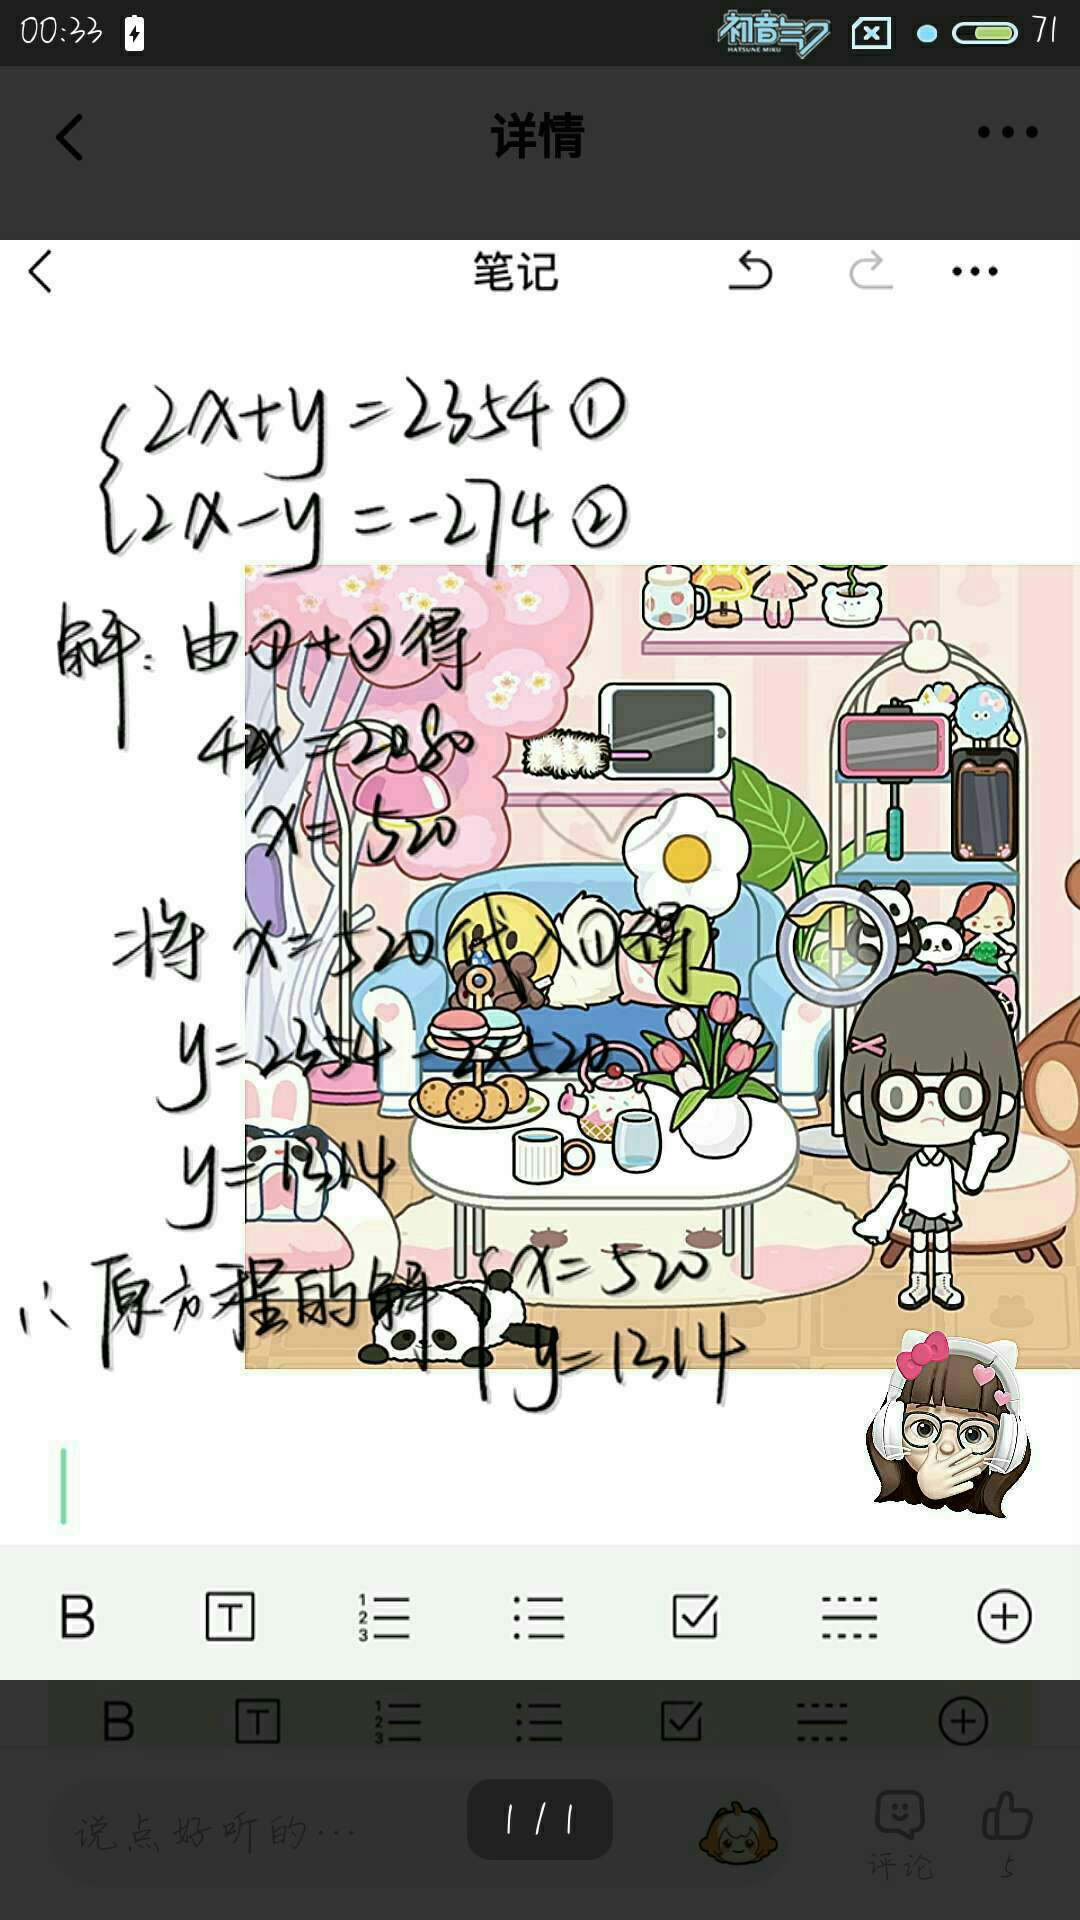 00:33
初音ミク
HATSUNE MIKU
71
详情
笔记
2x+y=2354①
2x-y=-274②
解:由①+②得
4x=2080
x=520
将x=520代入①得
y=2354-2×520
y=1314
∴原方程的解
x=520
y=1314
B T 1 2 3
B T 1 2 3
说点好听的…
1/1
评论
5